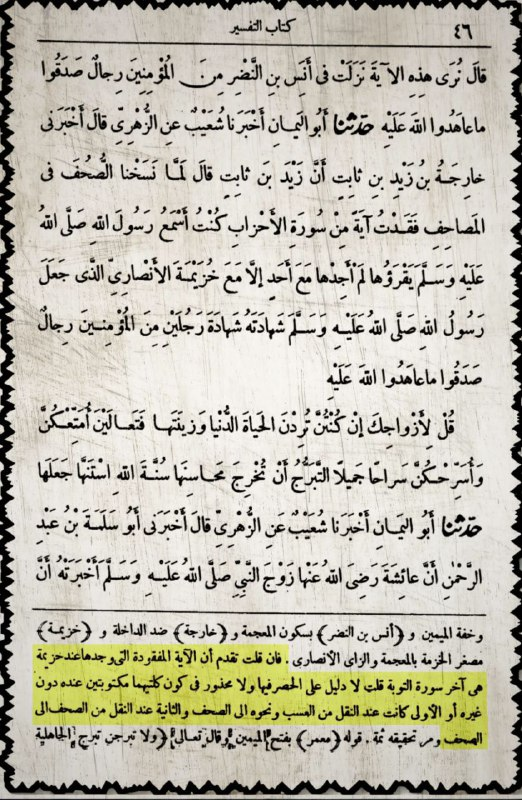 ٤٦
كتاب التفسير
قالَ نُرَى هذِهِ الآيَةَ نَزَلَتْ فى أَنَسِ بنِ النَّضْرِ مِنَ المُؤْمِنِينَ رِجالٌ صَدَقُوا
ماعاهَدُوا اللهَ عَلَيْهِ حَدَّثَنَا أَبُو اليَمانِ أَخْبَرَنا شُعَيْبٌ عَنِ الزُّهْرِىِّ قالَ أَخْبَرَنى
خارِجَةُ بْنُ زَيْدِ بنِ ثابِتٍ أَنَّ زَيْدَ بنَ ثابِتٍ قالَ لَمَّا نَسَخْنا الصُّحُفَ فى
المَصاحِفِ فَقَدْتُ آيَةً مِنْ سُورَةِ الأَحْزابِ كُنْتُ أَسْمَعُ رَسُولَ اللهِ صَلَّى اللهُ
عَلَيْهِ وَسَلَّمَ يَقْرَؤُها لَمْ أَجِدْها مَعَ أَحَدٍ إلَّا مَعَ خُزَيْمَةَ الأَنْصارِىِّ الَّذى جَعَلَ
رَسُولُ اللهِ صَلَّى اللهُ عَلَيْهِ وَسَلَّمَ شَهادَتَهُ شَهادَةَ رَجُلَيْنِ مِنَ المُؤْمِنِينَ رِجالٌ
صَدَقُوا ماعاهَدُوا اللهَ عَلَيْهِ
قُلْ لِأَزْواجِكَ إنْ كُنْتُنَّ تُرِدْنَ الحَياةَ الدُّنْيا وَزِينَتَها فَتَعالَيْنَ أُمَتِّعْكُنَّ
وَأُسَرِّحْكُنَّ سَراحًا جَمِيلًا التَّبَرُّجُ أَنْ تُخْرِجَ مَحاسِنَها سُنَّةَ اللهِ اسْتَنَّها جَعَلَها
حَدَّثَنَا أَبُو اليَمانِ أَخْبَرَنا شُعَيْبٌ عَنِ الزُّهْرِىِّ قالَ أَخْبَرَنى أَبُو سَلَمَةَ بْنُ عَبْدِ
الرَّحْمٰنِ أَنَّ عائِشَةَ رَضِىَ اللهُ عَنْها زَوْجَ النَّبِىِّ صَلَّى اللهُ عَلَيْهِ وَسَلَّمَ أَخْبَرَتْهُ أَنَّ
وخفة الميمين و ﴿أنس بن النضر﴾ بسكون المعجمة و ﴿خارجة﴾ ضد الداخلة و ﴿خزيمة﴾
مصغر الخزمة بالمعجمة والزاى الأنصارى . فان قلت تقدم أن الآية المفقودة التى وجدها عند خزيمة
هى آخر سورة التوبة قلت لا دليل على الحصر فيها ولا محذور فى كون كلتيهما مكتوبتين عنده دون
غيره أو الأولى كانت عند النقل من العسب ونحوه الى الصحف والثانية عند النقل من الصحف الى
المصحف ومر تحقيقه ثمة . قوله ﴿معمر﴾ بفتح الميمين وقال تعالى ﴿ولا تبرجن تبرج الجاهلية